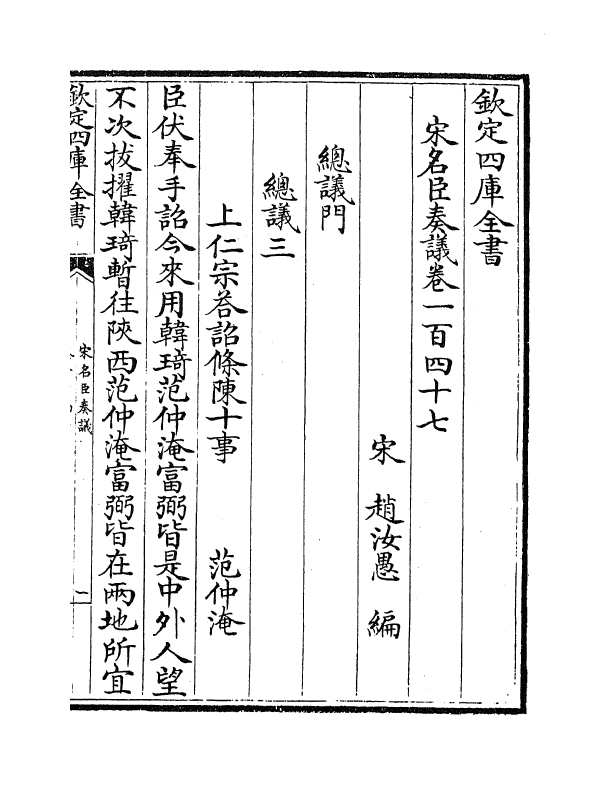 欽定四庫全書
宋名臣奏議卷一百四十七
宋 趙汝愚 編
總議門
總議三
上仁宗答詔條陳十事 范仲淹
臣伏奉手詔今來用韓琦范仲淹富弼皆是中外人望
不次拔擢韓琦暫往陝西范仲淹富弼皆在兩地所宜
欽定四庫全書
宋名臣奏議